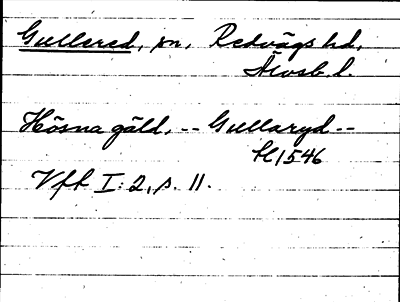 Gullered, sn, Redvägs hd,
Älvsb. l.
Hösna gäld, -- Gullaryd --
1546
Vfk I: 2, s. 11.